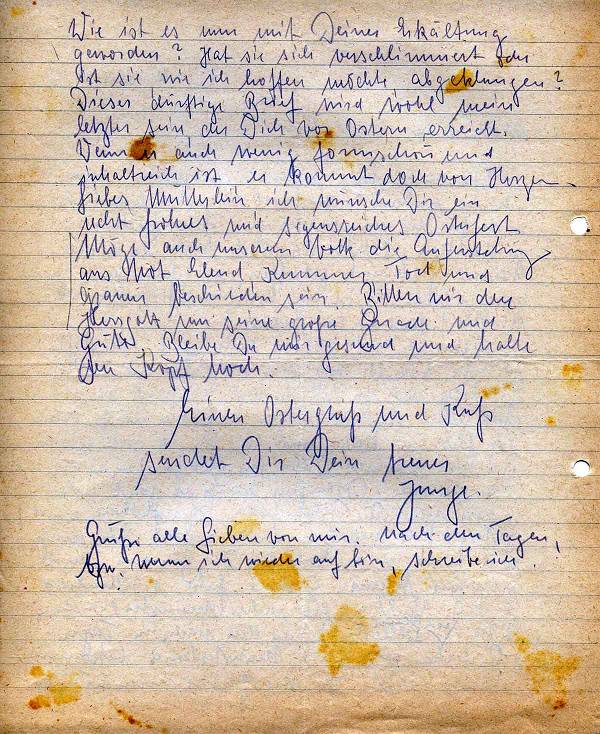 Wie ist es nun mit Deiner Erkältung
geworden? Hat sie sich verschlimmert oder
ist sie wie ich hoffen möchte abgeklungen?
Dieser dürftige Brief wird wohl mein
letzter sein der Dich vor Ostern erreicht.
Wenn er auch wenig formschön und
inhaltreich ist er kommt doch von Herzen.
Liebes Mütterlein ich wünsche Dir ein
recht frohes und segensreiches Osterfest
Möge auch unserem Volk die Auferstehung
aus Not Elend Kummer Tod und
Grauen beschieden sein. Bitten wir den
Herrgott um seine große Gnade und
Güte. Bleibe Du mir gesund und halte
den Kopf hoch.
Einen Ostergruß und Kuß
sendet Dir Dein treuer
Junge.
Grüße alle Lieben von mir. Nach den Tagen,
bzw. wenn ich wieder auf bin, schreibe ich